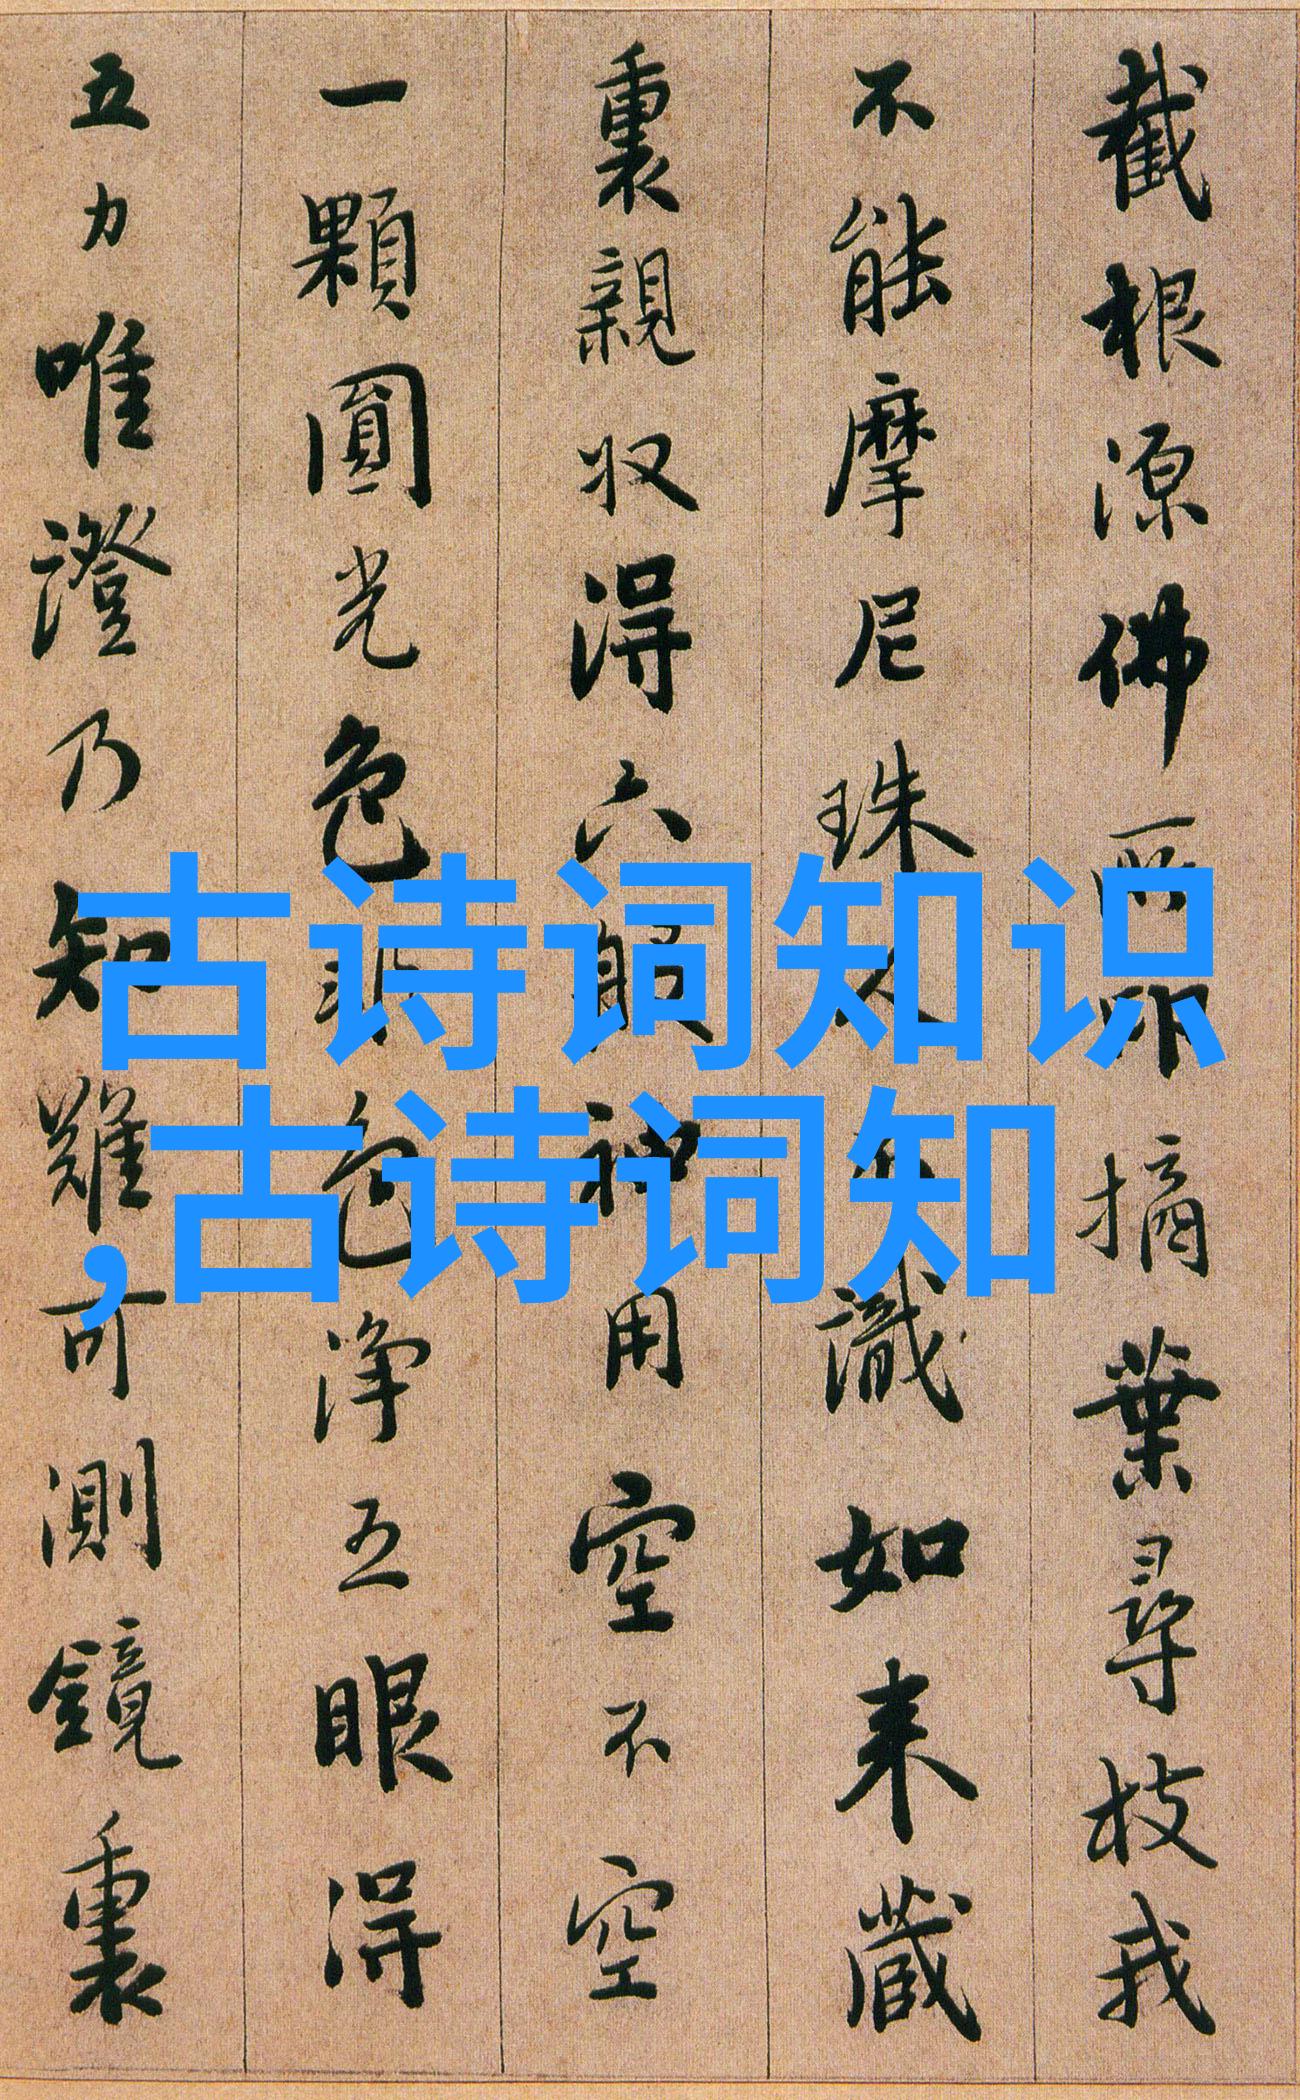 截根源佛所印摘葉尋枝我
不能摩尼珠人不識如来藏
裏親収得六般神用空不空
一顆圓光色非色淨五眼得
五力唯證乃知難可測鏡裏
古诗词知识
,古诗词知